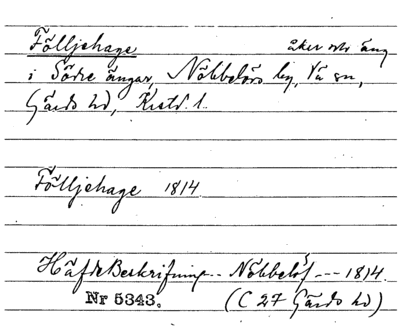 Fölljehage åker och äng
i Södre ängar, Nöbbelövs by, Vä sn,
Gärds hd, Krstd. l.
Fölljehage 1814
HäfdeBeskrifning -- Nöbbelöf --- 1814.
Nr 5343. (C 27 Gärds hd)